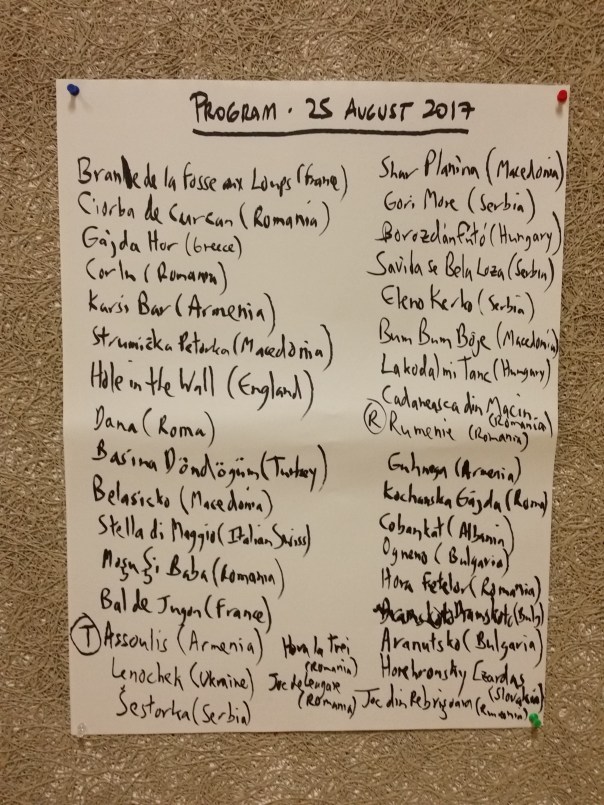 PROGRAM · 25 AUGUST 2017
Branle de la fosse aux Loups (France)
Ciorba de Curcan (Romania)
Gajda Hor (Greece)
Corlu (Romania)
Karsi Bar (Armenia)
Strumička Petorka (Macedonia)
Hole in the Wall (England)
Dana (Roma)
Basina Döndögüm (Turkey)
Belasicko (Macedonia)
Stella di Maggio (Italian Swiss)
Moşu Şi Baba (Romania)
Bal de Jugon (France)
T Assoulis (Armenia)
Lenochek (Ukraine)
Šestorka (Serbia)
Hora la Trei
(Romania)
Joc de Leagane
(Romania)
Shar Planina (Macedonia)
Gori More (Serbia)
Borozdánfutó (Hungary)
Savila se Bela Loza (Serbia)
Eleno Kerko (Serbia)
Bum Bum Böje (Macedonia)
Lakodalmi Tanc (Hungary)
Cadaneasca din Macin
(Romania)
R Rumenie (Romania)
(Armenia)
Kochanska Gajda (Roma)
Cobankat (Albania)
Ogneno (Bulgaria)
Hora Fetelor (Romania)
Dramskoto (Bulg)
Aranutsko (Bulgaria)
Horehronsky Czardas
(Slovakia)
Joc din (Rumania)